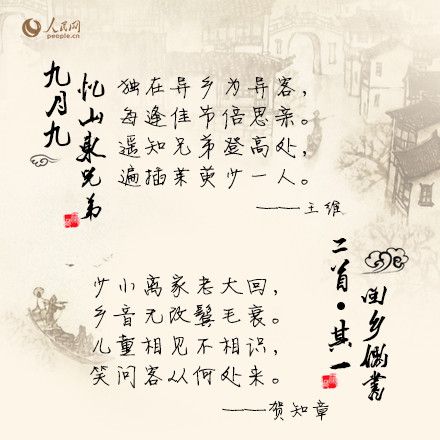 人民网
people.cn
九月九
忆山東兄弟
独在异乡为异客，
每逢佳节倍思亲。
遥知兄弟登高处，
遍插茱萸少一人。
——王维
回乡偶書
二首·其一
少小离家老大回，
乡音无改鬓毛衰。
儿童相见不相识，
笑问客从何处来。
——贺知章